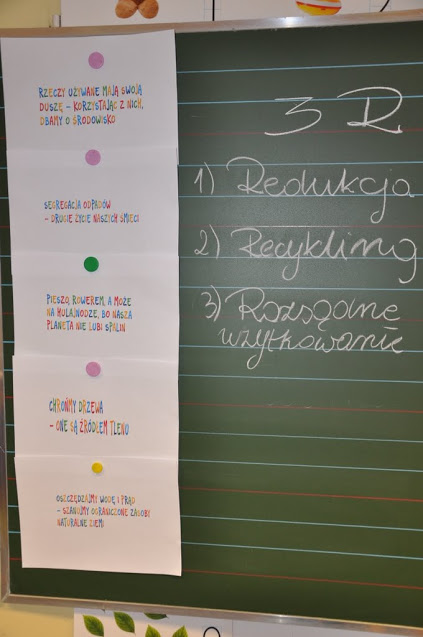 RZECZY UŻYWANE MAJĄ SWOJĄ
DUSZĘ – KORZYSTAJĄC Z NICH,
DBAMY O ŚRODOWISKO
SEGREGACJA ODPADÓW
– DRUGIE ŻYCIE NASZYCH ŚMIECI
PIESZO, ROWEREM, A MOŻE
NA HULAJNODZE, BO NASZA
PLANETA NIE LUBI SPALIN
CHROŃMY DRZEWA
– ONE SĄ ŹRÓDŁEM TLENU
OSZCZĘDZAJMY WODĘ I PRĄD
– SZANUJMY OGRANICZONE ZASOBY
NATURALNE ZIEMI
3 R
1) Redukcja
2) Recykling
3) Rozsądne
użytkowanie